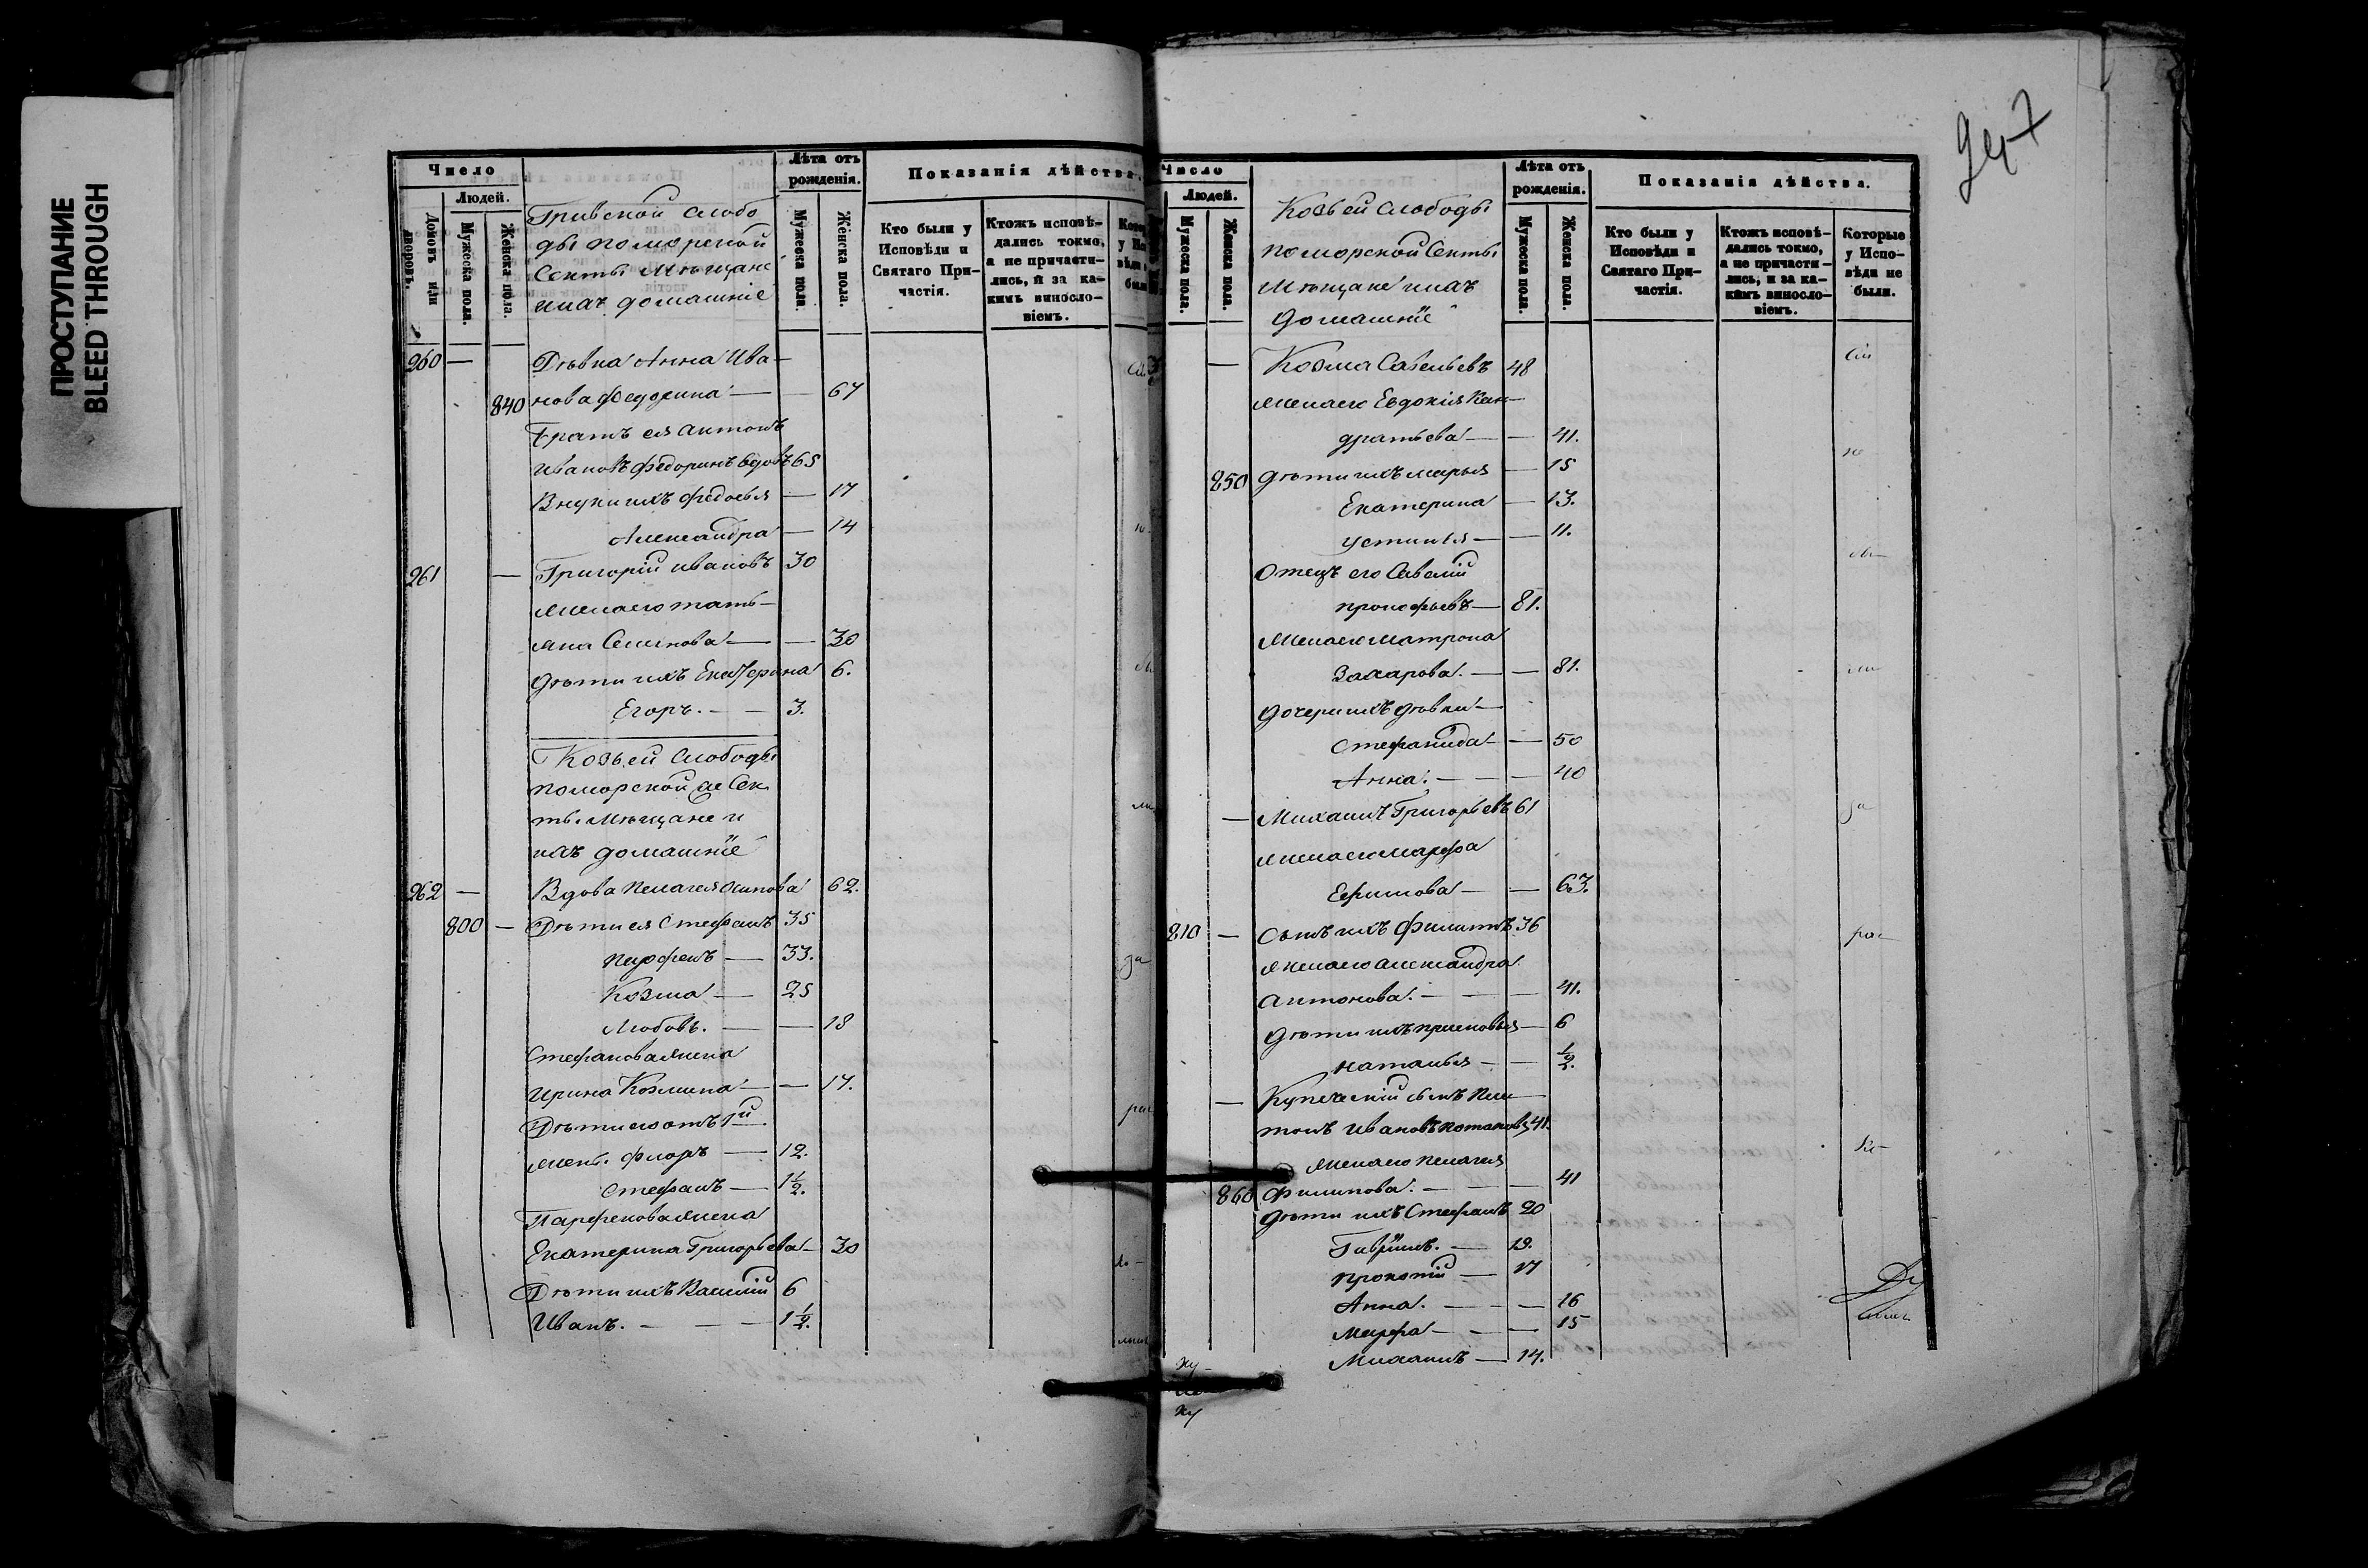 ПРОСТУПАНИЕ
BLEED THROUGH
Число
Людей.
Домовъ или дворовъ.
Мужеска пола.
Женска пола.
Гривской слобо
ды поморской
Секты Мѣщане
ихъ домашніе
Лѣта отъ рожденія.
Мужеска пола.
Женска пола.
Показанія дѣйства.
Кто были у Исповѣди и Святаго При-частія.
Ктожъ исповѣ-дались токмо, а не причасти-лись, и за ка-кимъ винословіемъ.
260 — Дѣвка Анна Ива-
840 нова Федорина — — 67
Братъ ея Антонъ
Ивановъ Федоринъ вдовъ 65
Внуки ихъ Федосья — 17
Александра — 14
261 — Григорій Ивановъ 30
жена его Тать-
яна Семенова — — 30
дѣти ихъ Екатерина 6.
Егоръ. — — 3.
Козьей Слободы
поморской же Сек
ты Мѣщане и
ихъ домашніе
262 — Вдова Пелагея Осипова 62.
800 — Дѣти ея Стефанъ 35
Парфенъ — 33.
Козма — 25
Любовь. — — 18
Стефанова жена
Ирина Козмина — — 17.
Дѣти его отъ 1й
жены Флоръ — 12.
Стефанъ — 1 1/2.
Парфенова жена
Екатерина Григорьева — 30
Дѣти ихъ Василій 6
Иванъ. — — — 1 1/2.
Число
Людей.
Мужеска пола.
Женска пола.
Козьей Слободы
поморской Секты
Мѣщане ихъ
домашніе
Лѣта отъ рожденія.
Мужеска пола.
Женска пола.
Показанія дѣйства.
Кто были у Исповѣди и Святаго При-частія.
Ктожъ исповѣ-дались токмо, а не причасти-лись, и за ка-кимъ винословіемъ.
Которые у Испо-вѣди не были.
— Козма Савельевъ 48
жена его Евдокія Кон-
дратьева — — 41.
850 дѣти ихъ Марья — 15
Екатерина — 13.
Устинья — — 11.
Отецъ его Савелій
Прокофьевъ — 81.
Жена его Матрона
Захарова. — — 81.
дочери ихъ дѣвки —
Стефанида — — 50
Анна. — — — 40
— Михаилъ Григорьевъ 61
жена его Марфа
Ефимова — — 63.
810 — Сынъ ихъ Филиппъ 36
жена его Александра
Антонова. — — — 41.
дѣти ихъ Прасковья — 6
Наталья — — 1/2.
— Купеческій сынъ Пла
тонъ Ивановъ Потаповъ 41.
жена его Пелагея
860 Филипова. — — — 41
дѣти ихъ Стефанъ 20
Гавріилъ. — 19.
Прокопій — 17
Анна. — — — 16
Марфа — — — 15
Михаилъ — 14.